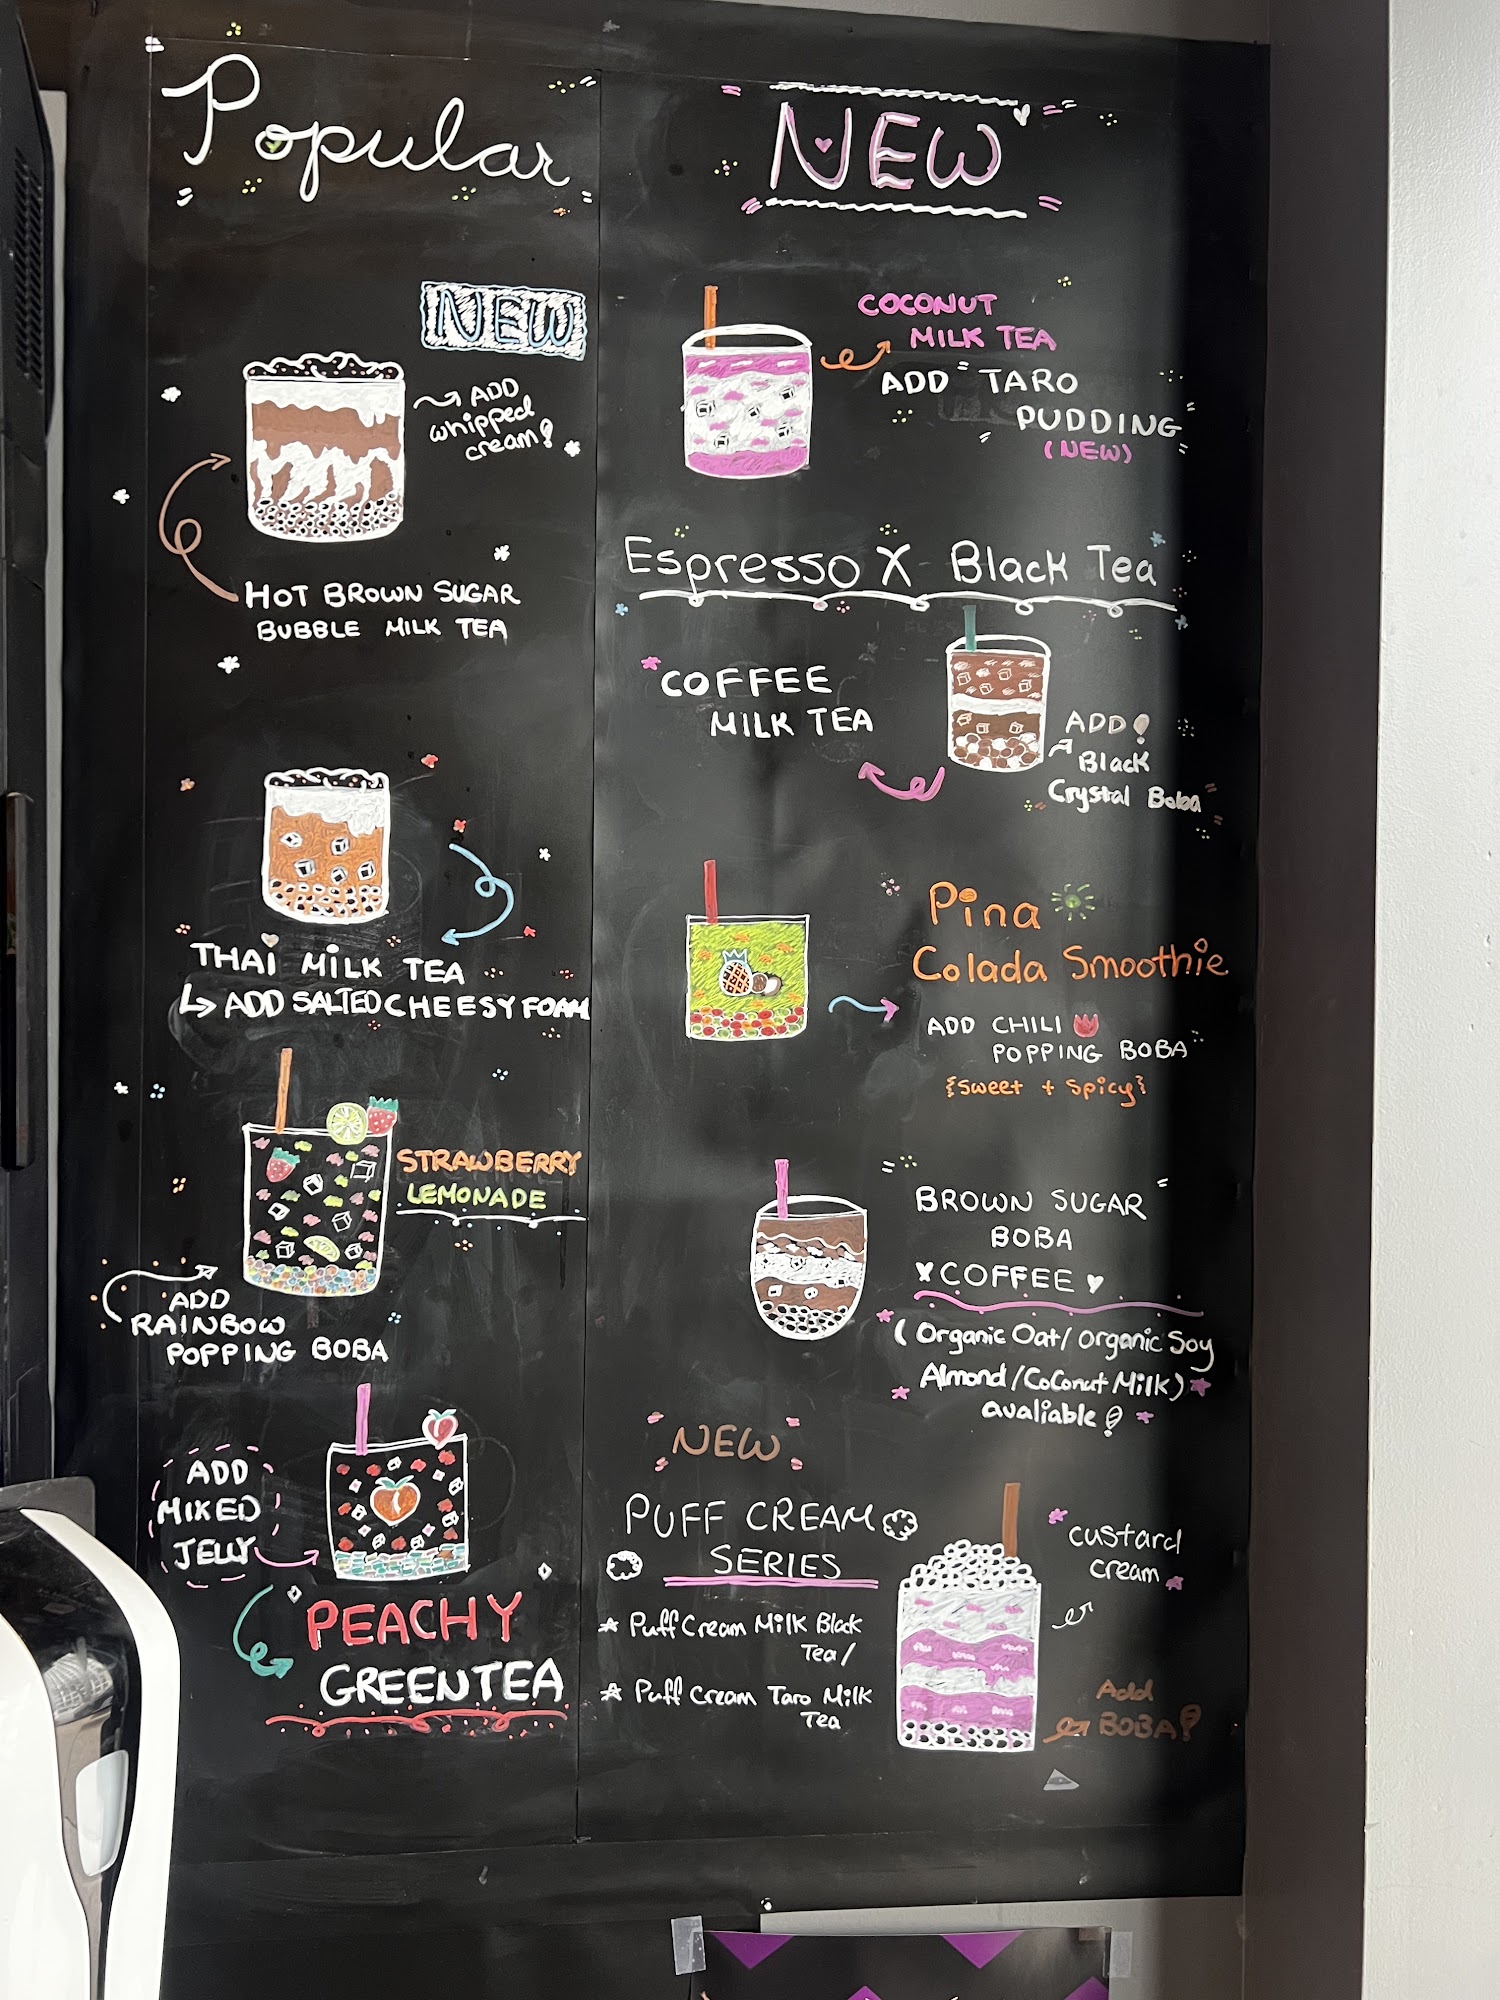 Popular
NEW
ADD
whipped
cream!
HOT BROWN SUGAR
BUBBLE MILK TEA
THAI MILK TEA
ADD SALTED CHEESY FOAM
STRAWBERRY
LEMONADE
ADD
RAINBOW
POPPING BOBA
ADD
MIXED
JELLY
PEACHY
GREEN TEA
NEW
COCONUT
MILK TEA
ADD "TARO
PUDDING"
(NEW)
Espresso X Black Tea
COFFEE
MILK TEA
ADD!
Black
Crystal Boba
Pina
Colada Smoothie
ADD CHILI
POPPING BOBA
{Sweet + Spicy}
BROWN SUGAR
BOBA
COFFEE
(Organic Oat/Organic Soy
Almond/Coconut Milk)
avaliable!
NEW
PUFF CREAM
SERIES
Puff Cream Milk Black
Tea/
Puff Cream Taro Milk
Tea
custard
cream
Add
BOBA!